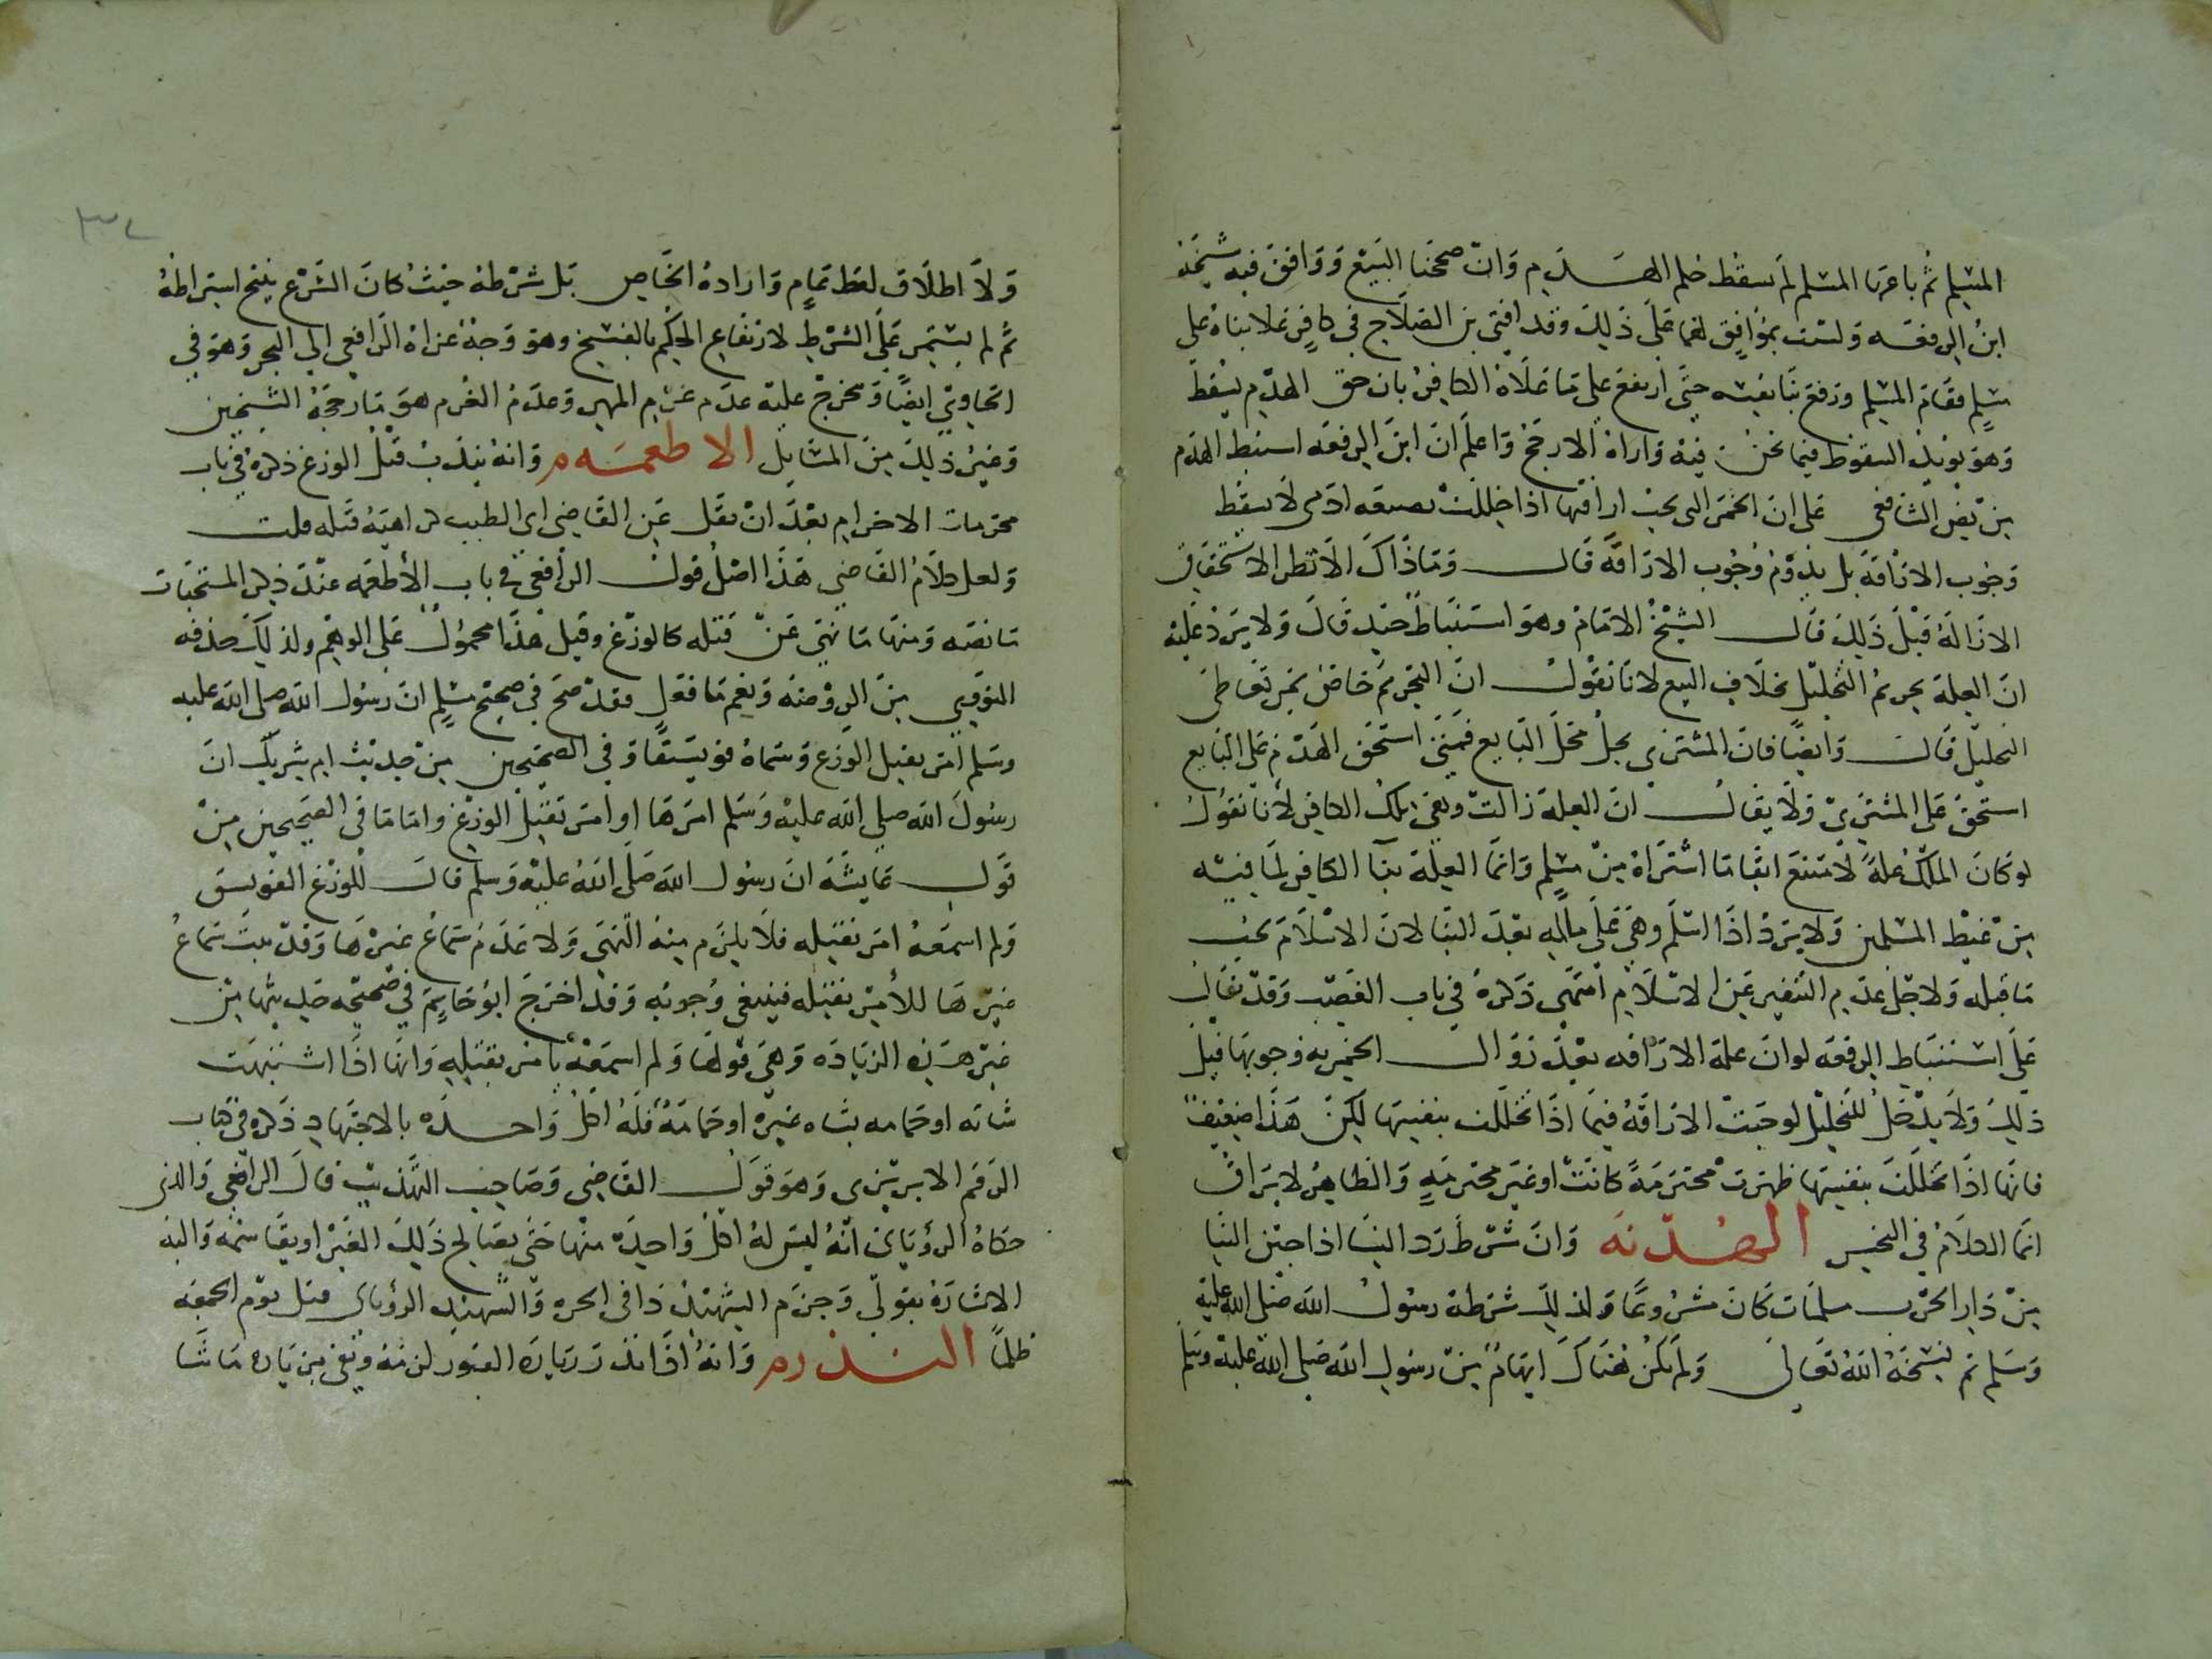 المسلم ثم باعها المسلم لم يسقط حكم الهدم وان صححنا البيع ووافق فيه شيخه
ابن الرفعه ولست بموافق لهما على ذلك وقد افتى بن الصلاح في كافر علا بناه على
مسلم فقام المسلم ورفع بنا بيته حتى ارتفع على ما علاه الكافر بان حق الهدم يسقط
وهو يويد السقوط فيما نحن فيه واراه الارجح واعلم ان ابن الرفعه استنبط الهدم
من نص الشافعي على ان الخمر التي يجب اراقتها اذا خللت بصنعه ادمي لا يسقط
وجوب الاراقة بل يدوم وجوب الاراقة قال وما ذاك الا نظر الاستحقاق
الازالة قبل ذلك قال الشيخ الامام وهو استنباط جيد قال ولا يرد عليه
ان العلة تحريم التخليل بخلاف البيع لانا نقول ان التحريم خاص بمن تعاطى
التخليل قال وايضا فان المشتري يحل محل البايع فمتى استحق الهدم على البايع
استحق على المشتري ولا يقال ان العلة زالت وهي ملك الكافر لانا نقول
لو كان الملك علة لامتنع ابقا ما اشتراه من مسلم وانما العلة بنا الكافر لما فيه
من غيظ المسلمين ولا يرد اذا اسلم وهي على ماله بعد البنا لان الاسلام يجب
ما قبله ولاجل عدم التنفير عن الاسلام انتهى ذكره في باب الغصب وقد يقال
على استنباط ابن الرفعه لو ان علة الاراقه بعد زوال الخمريه وجوبها قبل
ذلك ولا يدخل للتخليل لوجبت الاراقة فيما اذا تخللت بنفسها لكن هذا ضعيف
فانها اذا تخللت بنفسها طهرت محترمة كانت او غير محترمة والطاهر لا يراق
انما الكلام في النجس الهدنه وان شرط رد النسا اذا جين الينا
من دار الحرب مسلمات كان مشروعا ولذلك شرطه رسول الله صلى الله عليه
وسلم ثم نسخه الله تعالى ولم يكن هناك ايهام من رسول الله صلى الله عليه وسلم
ولا اطلاق لفظ تمام وارادة الخاص بل شرطه حيث كان الشرع يبيح اشتراطه
ثم لم يستمر على الشرط لارتفاع الحكم بالفسخ وهو وجه عزاه الرافعي الى البحر وهو في
الحاوي ايضا ويخرج عليه عدم غرم المهر وعدم الغرم هو ما رجحه الشيخين
وغير ذلك من المسايل الاطعمه وانه يندب قتل الوزغ ذكره في باب
محرمات الاحرام بعد ان نقل عن القاضي ابي الطيب كراهية قتله قلت
ولعل كلام القاضي هذا اصل قول الرافعي في باب الأطعمه عند ذكر المستخبثات
ما نصه ومنها ما نهي عن قتله كالوزغ وقيل هذا محمول على الوهم ولذلك حذفه
النووي من الروضه ونعم ما فعل فقد صح في صحيح مسلم ان رسول الله صلى الله عليه
وسلم امر بقتل الوزغ وسماه فويسقا وفي الصحيحين من حديث ام شريك ان
رسول الله صلى الله عليه وسلم امرها او امر بقتل الوزغ واما ما في الصحيحين من
قول عايشة ان رسول الله صلى الله عليه وسلم قال للوزغ الفويسق
ولم اسمعه امر بقتله فلا يلزم منه النهي ولا عدم سماع غيرها وقد ثبت سماع
غيرها للأمر بقتله فينبغي وجوبه وقد اخرج ابو حاتم في صحيحه حديثها من
غير هذه الزيادة وهي قولها ولم اسمعه يأمر بقتله وانها اذا اشتبهت
شاته او حمامه بشاه غيره او حمامة فله اكل واحده بالاجتهاد ذكره في كتاب
الرقم الابريزي وهو قول القاضي وصاحب التهذيب قال الرافعي والذي
حكاه الروياني انه ليس له اكل واحدة منها حتى يصالح ذلك الغير او يقاسمه واليه
الاشارة بقولي وجزم الشهيد ذا في الحره والشهيد الروياني قتل يوم الجمعه
ظلما النذر وانه اذا نذر زيارة القبور لزمه وتعين زياره ما شا